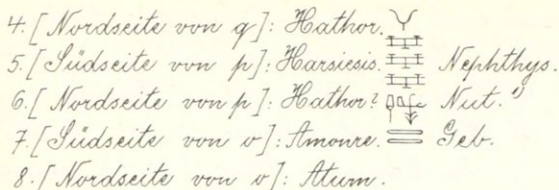 4. [Nordseite von q]: Hathor.
5. [Südseite von p]: Harsiesis. Nephthys.
6. [Nordseite von p]: Hathor? Nut. 1)
7. [Südseite von o]: Amonre. Geb.
8. [Nordseite von o]: Atum.